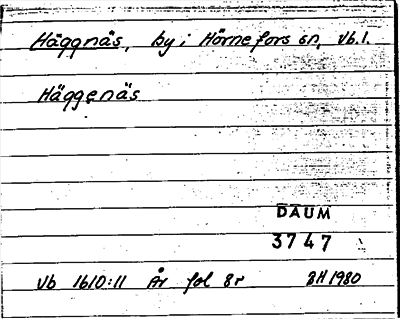 Häggnäs, by i Hörnefors sn, Vb.l.
Häggenäs
DAUM
3747
Vb 1610:11 År fol 8r BH 1980